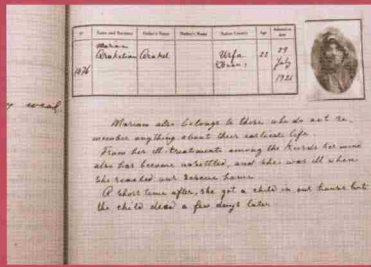 Nº Name and Surname Father's Name Mother's Name Native Country Age Admission date
1076 Mariam Arakelian Arakel Urfa 22 29 July 1921
y weak.
Mariam also belongs to those who do not re-
member anything about their earliest life.
From her ill-treatments among the Kurds her mind
also has become unsettled, and she was ill when
she reached our rescue home.
A short time after, she got a child in our house but
the child died a few days later.